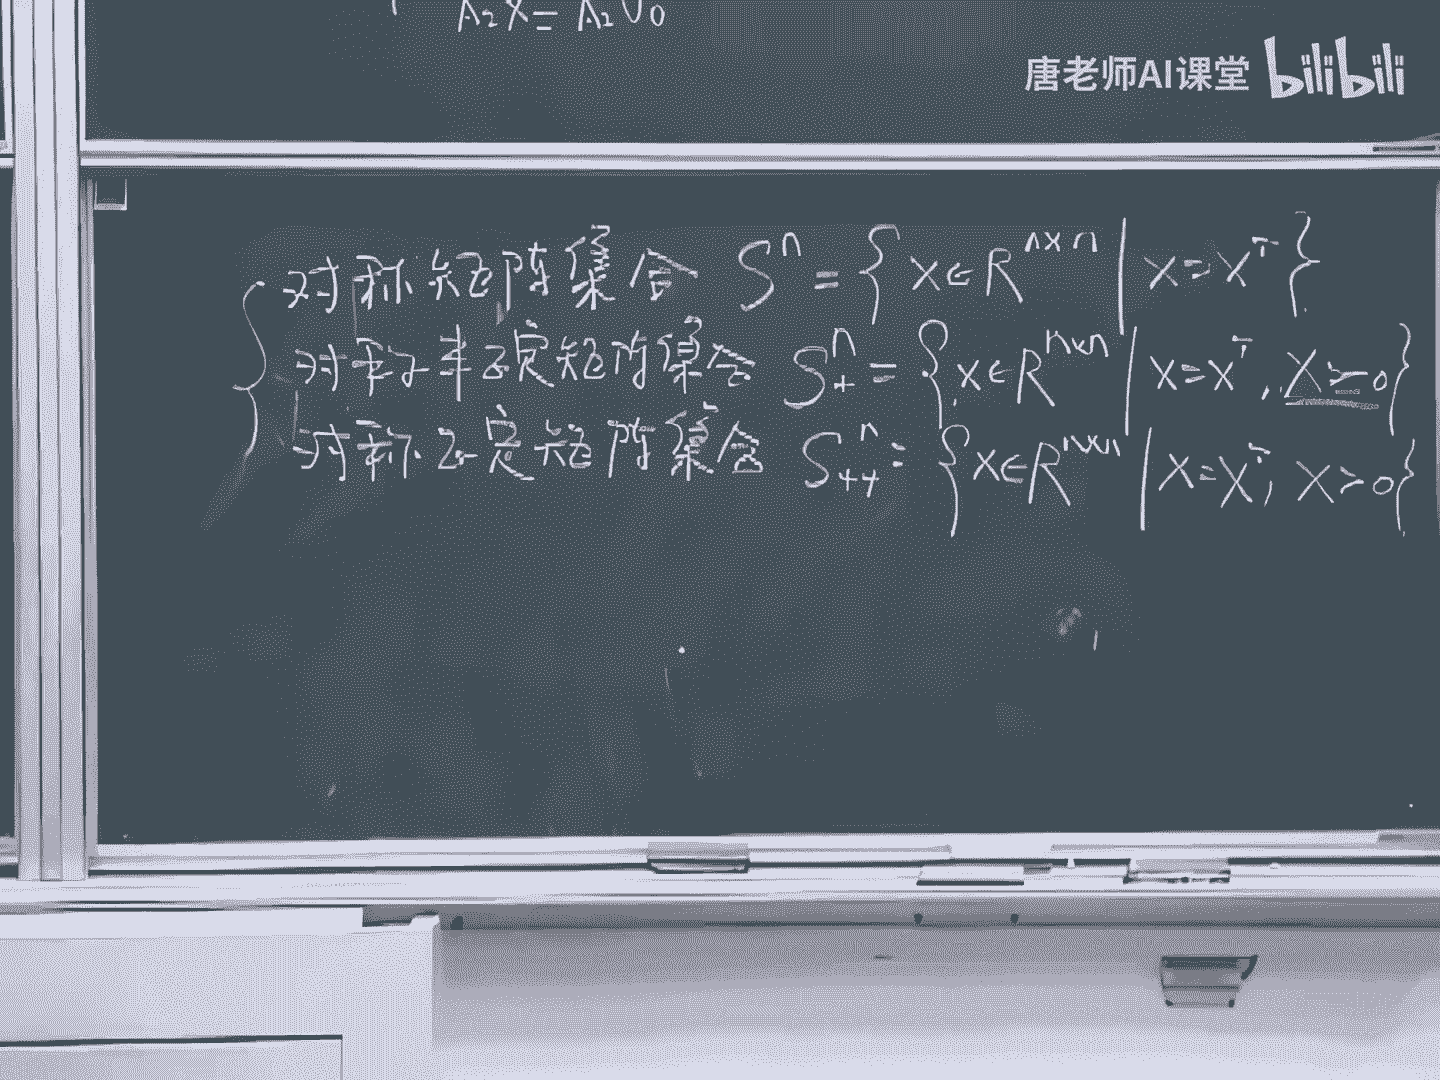 A₂X = A₂U₀
唐老师AI课堂 bilibili
对称矩阵集合 Sⁿ = { X ∈ Rⁿˣⁿ | X = Xᵀ }
对称半正定矩阵集合 S₊ⁿ = { X ∈ Rⁿˣⁿ | X = Xᵀ, X ≽ 0 }
对称正定矩阵集合 S₊₊ⁿ = { X ∈ Rⁿˣⁿ | X = Xᵀ, X ≻ 0 }